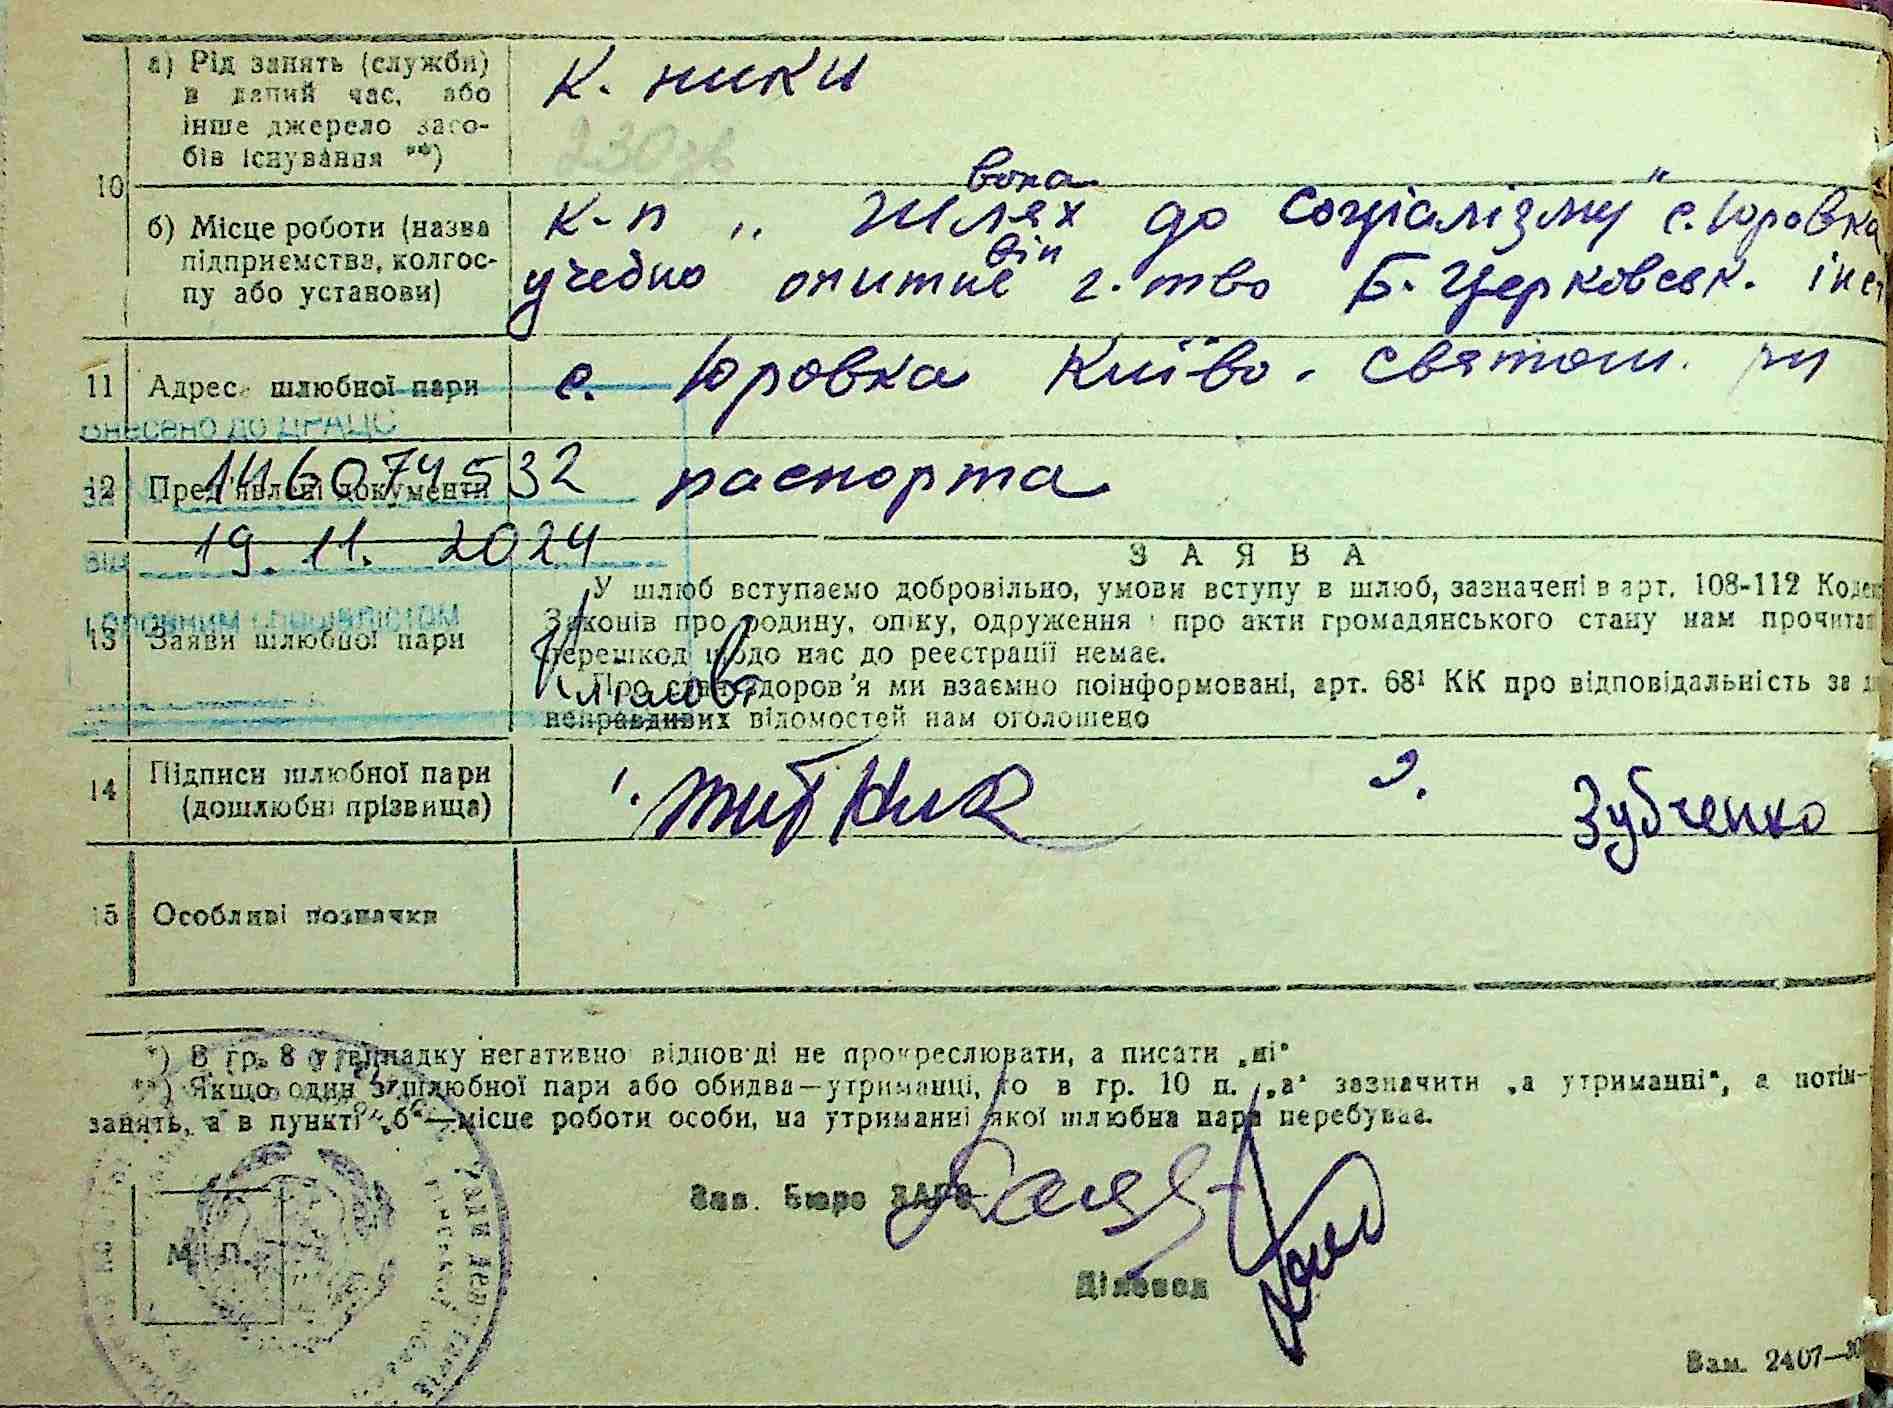 10
а) Рід занять (служби)
в даний час, або
інше джерело засо-
бів існування **)
к. ники
б) Місце роботи (назва
підприємства, колгос-
пу або установи)
вона
к-п „ Шлях до соціалізму" с. Юровка
він
учебно опитне г. тво Б. Церковськ. інст
11 Адреса шлюбної пари
с. Юровка Київо. Святош. рн
Внесено до ДРАЦС
12 Пред'явлені документи
паспорта
за 1146074532
від 19. 11. 2024
головним спеціалістом
13 Заяви шлюбної пари
ЗАЯВА
У шлюб вступаємо добровільно, умови вступу в шлюб, зазначені в арт. 108-112 Кодек
Законів про родину, опіку, одруження і про акти громадянського стану нам прочитан
перешкод щодо нас до реєстрації немає.
Про стан здоров'я ми взаємно поінформовані, арт. 68¹ КК про відповідальність за д
неправдивих відомостей нам оголошено
14 Підписи шлюбної пари
(дошлюбні прізвища)
1. Житник 2. Зубченко
15 Особливі позначки
*) В гр. 8 у випадку негативної відповіді не прокреслювати, а писати „ні"
**) Якщо один з шлюбної пари або обидва—утриманці, то в гр. 10 п. „а" зазначити „а утриманні", а потім—
занять, а в пункті „б"—місце роботи особи, на утриманні якої шлюбна пара перебуває.
Зав. Бюро ЗАГС
М. П.
Діловод
Зам. 2407—